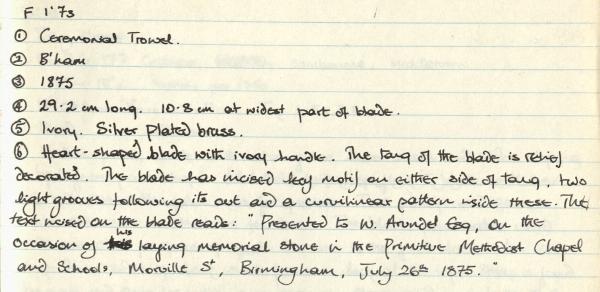 F 1'73
① Ceremonial Trowel.
② B'ham
③ 1875
④ 29.2 cm long. 10.8 cm at widest part of blade.
⑤ Ivory. Silver plated brass.
⑥ Heart-shaped blade with ivory handle. The tang of the blade is relief
decorated. The blade has incised key motif on either side of tang, two
light grooves following its out and a curvilinear pattern inside these. The
text incised on the blade reads: "Presented to W. Arundel Esq, on the
occasion of his laying memorial stone in the Primitive Methodist Chapel
and Schools, Morville St, Birmingham, July 26th 1875."